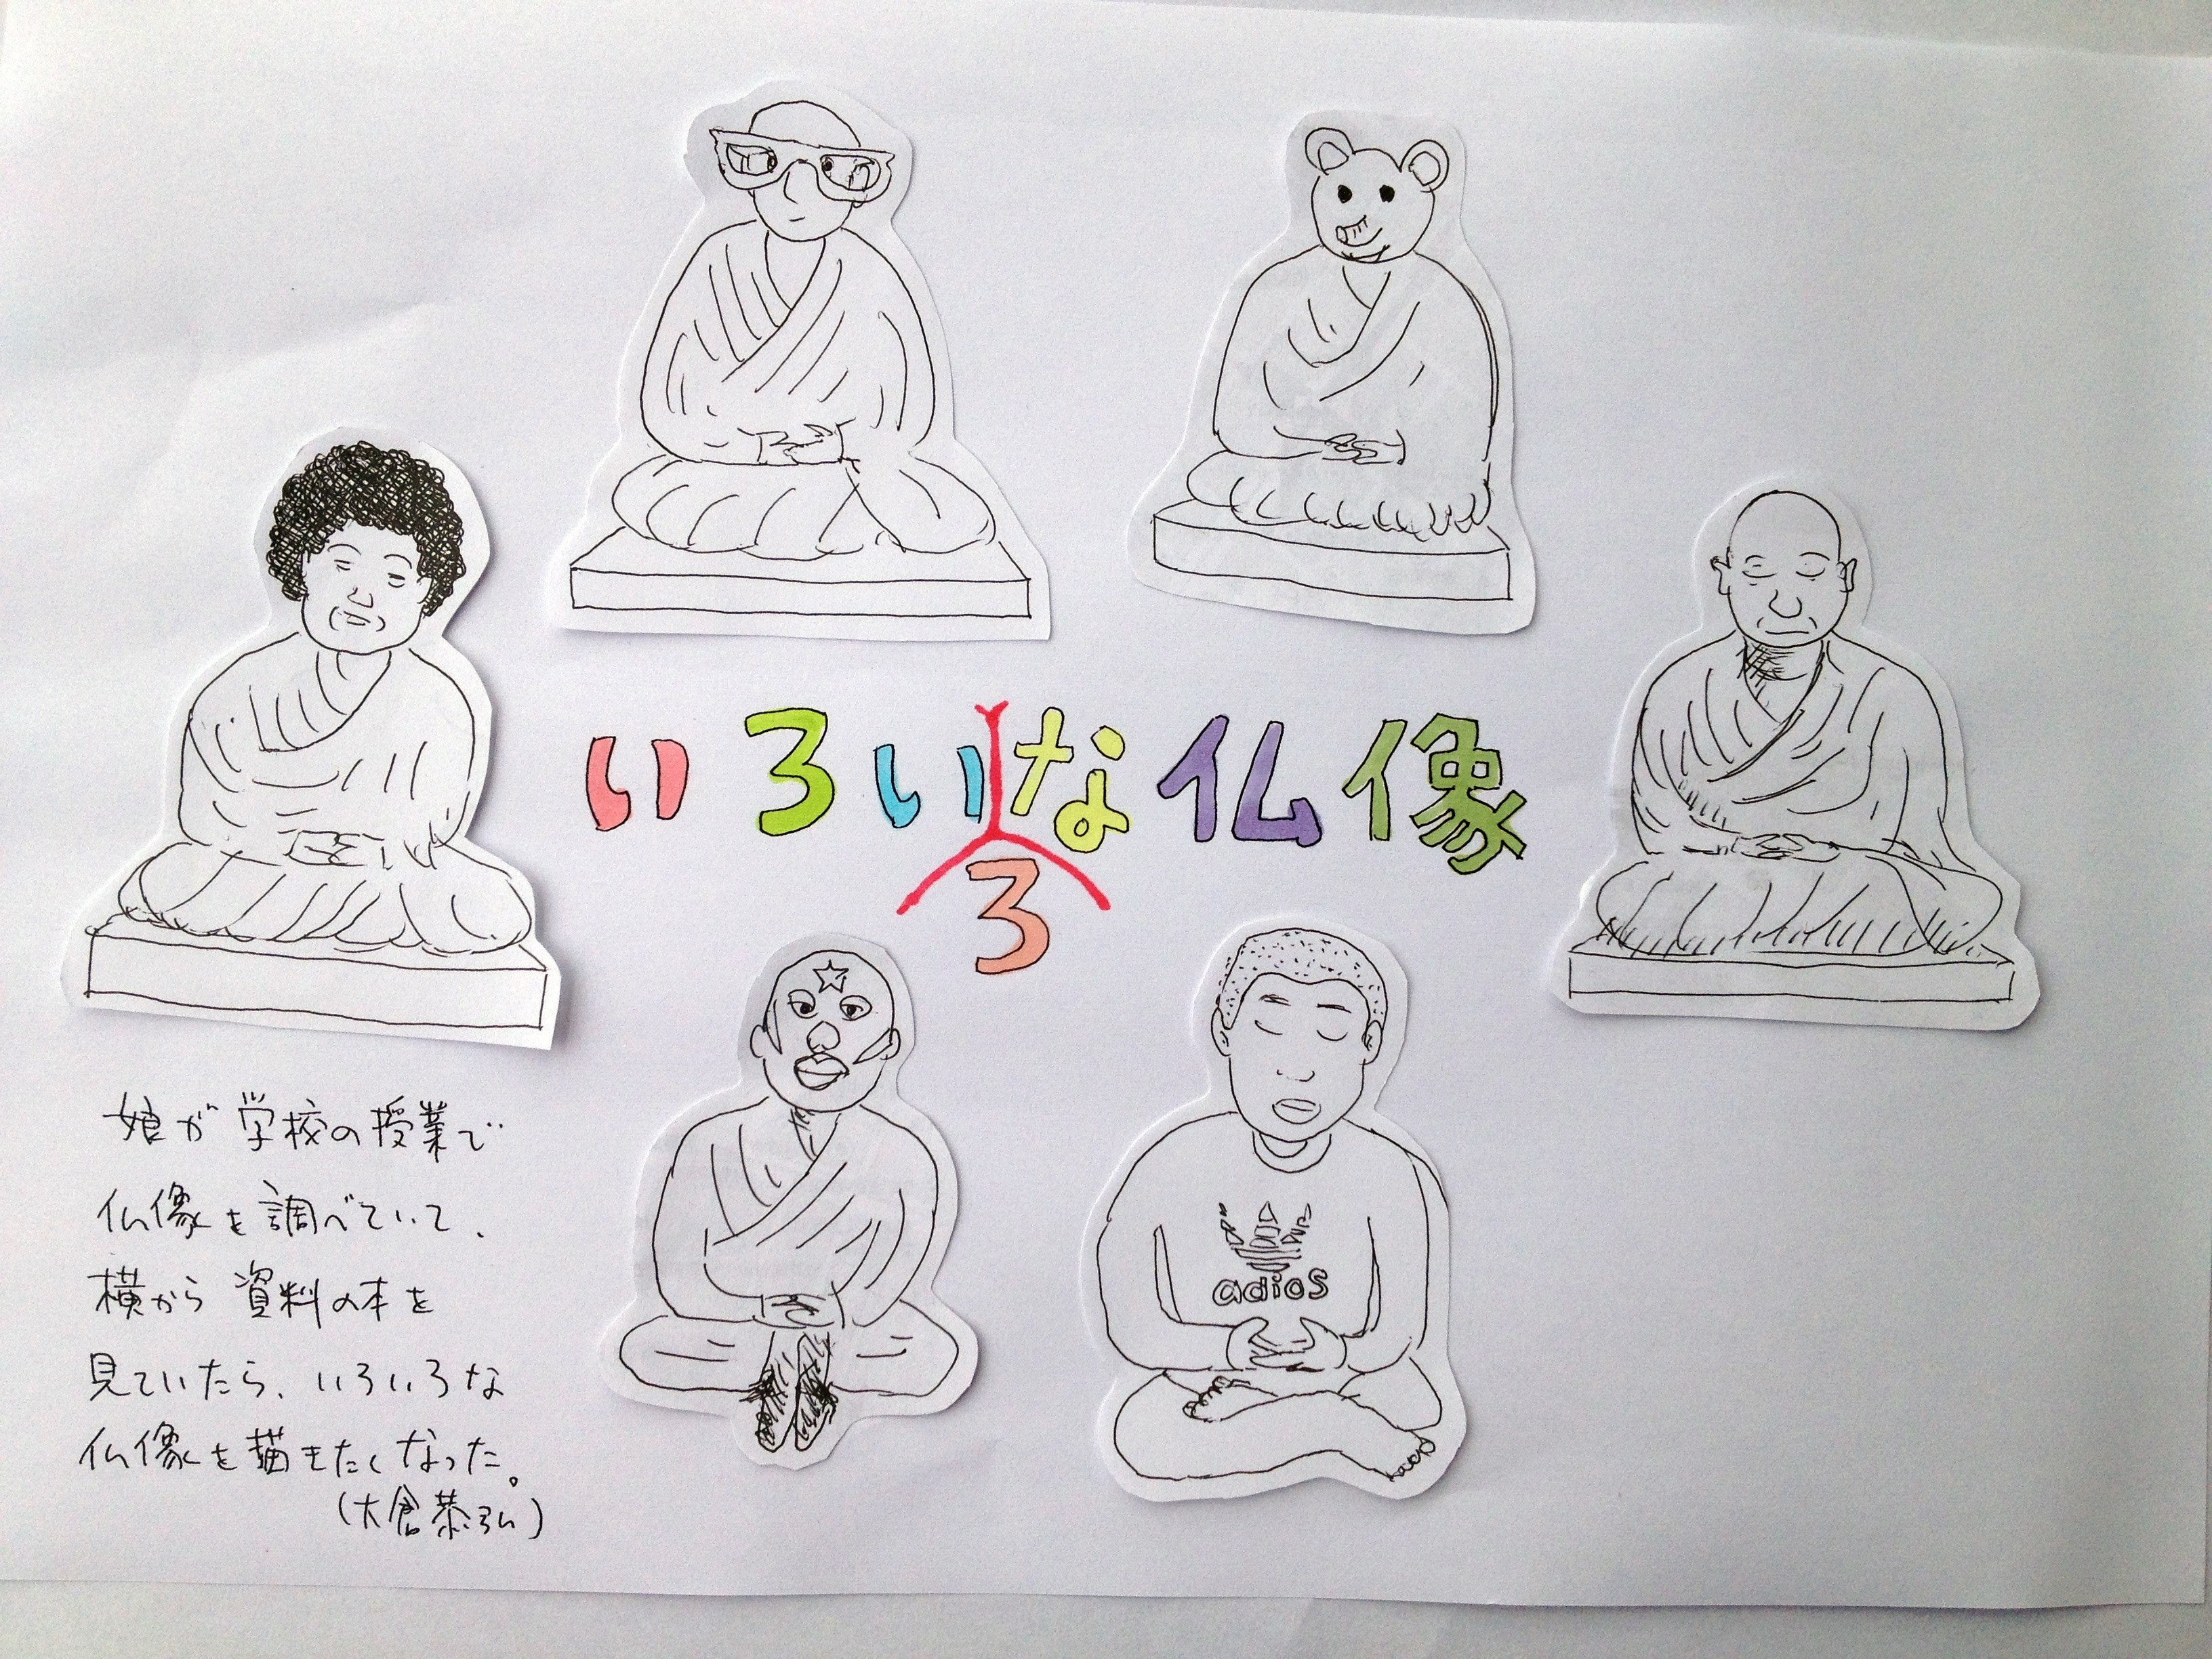 いろいな仏像
ろ
adios
娘が学校の授業で
仏像を調べていて、
横から資料の本を
見ていたら、いろいろな
仏像を描きたくなった。
(大倉恭弘)